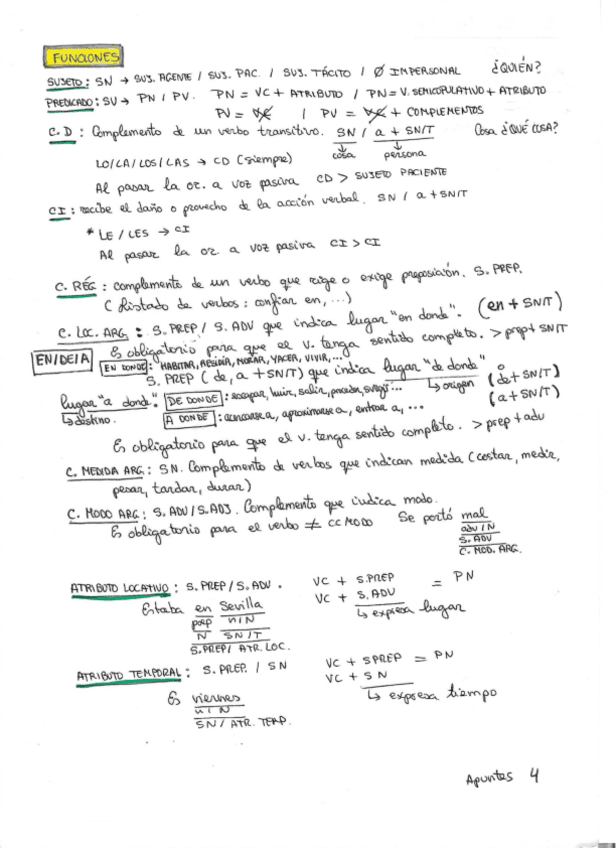 FUNCIONES
SUJETO: SN → SUJ. AGENTE / SUJ. PAC. / SUJ. TÁCITO / Ø IMPERSONAL ¿QUIÉN?
PREDICADO: SV → PN / PV. PN = VC + ATRIBUTO / PN = V. SEMICOPULATIVO + ATRIBUTO
PV = VC / PV = VC + COMPLEMENTOS
C.D: Complemento de un verbo transitivo. SN / a + SN/T Cosa ¿QUÉ COSA?
cosa persona
LO/LA/LOS/LAS → CD (siempre)
Al pasar la or. a voz pasiva CD > SUJETO PACIENTE
CI: recibe el daño o provecho de la acción verbal. SN / a + SN/T
* LE / LES → CI
Al pasar la or. a voz pasiva CI > CI
C. RÉG: complemento de un verbo que rige o exige preposición. S. PREP.
(Listado de verbos: confiar en, ...)
C. LOC. ARG.: S. PREP / S. ADV que indica lugar "en donde". (en + SN/T)
Es obligatorio para que el v. tenga sentido completo. > prep + SN/T
EN/DE/A
EN DONDE: HABITAR, RESIDIR, MORAR, YACER, VIVIR, ...
S. PREP (de, a + SN/T) que indica lugar "de donde" o (de + SN/T)
↳ origen (a + SN/T)
lugar "a donde". DE DONDE: escapar, huir, salir, proceder, surgir...
↳ destino. A DONDE: acercarse a, aproximarse a, entrar a, ...
Es obligatorio para que el v. tenga sentido completo. > prep + adv
C. MEDIDA ARG: SN. Complemento de verbos que indican medida (costar, medir,
pesar, tardar, durar)
C. MODO ARG: S. ADV / S. ADJ. Complemento que indica modo.
Es obligatorio para el verbo ≠ CC MODO Se portó mal
adv / N
S. ADV
C. MOD. ARG.
ATRIBUTO LOCATIVO: S. PREP / S. ADV. VC + S. PREP = PN
VC + S. ADV
↳ expresa lugar
Estaba en Sevilla
prep n / N
N SN/T
S. PREP / ATR. LOC.
ATRIBUTO TEMPORAL: S. PREP. / SN VC + SPREP = PN
VC + SN
↳ expresa tiempo
Es viernes
n / N
SN / ATR. TEMP.
Apuntes 4